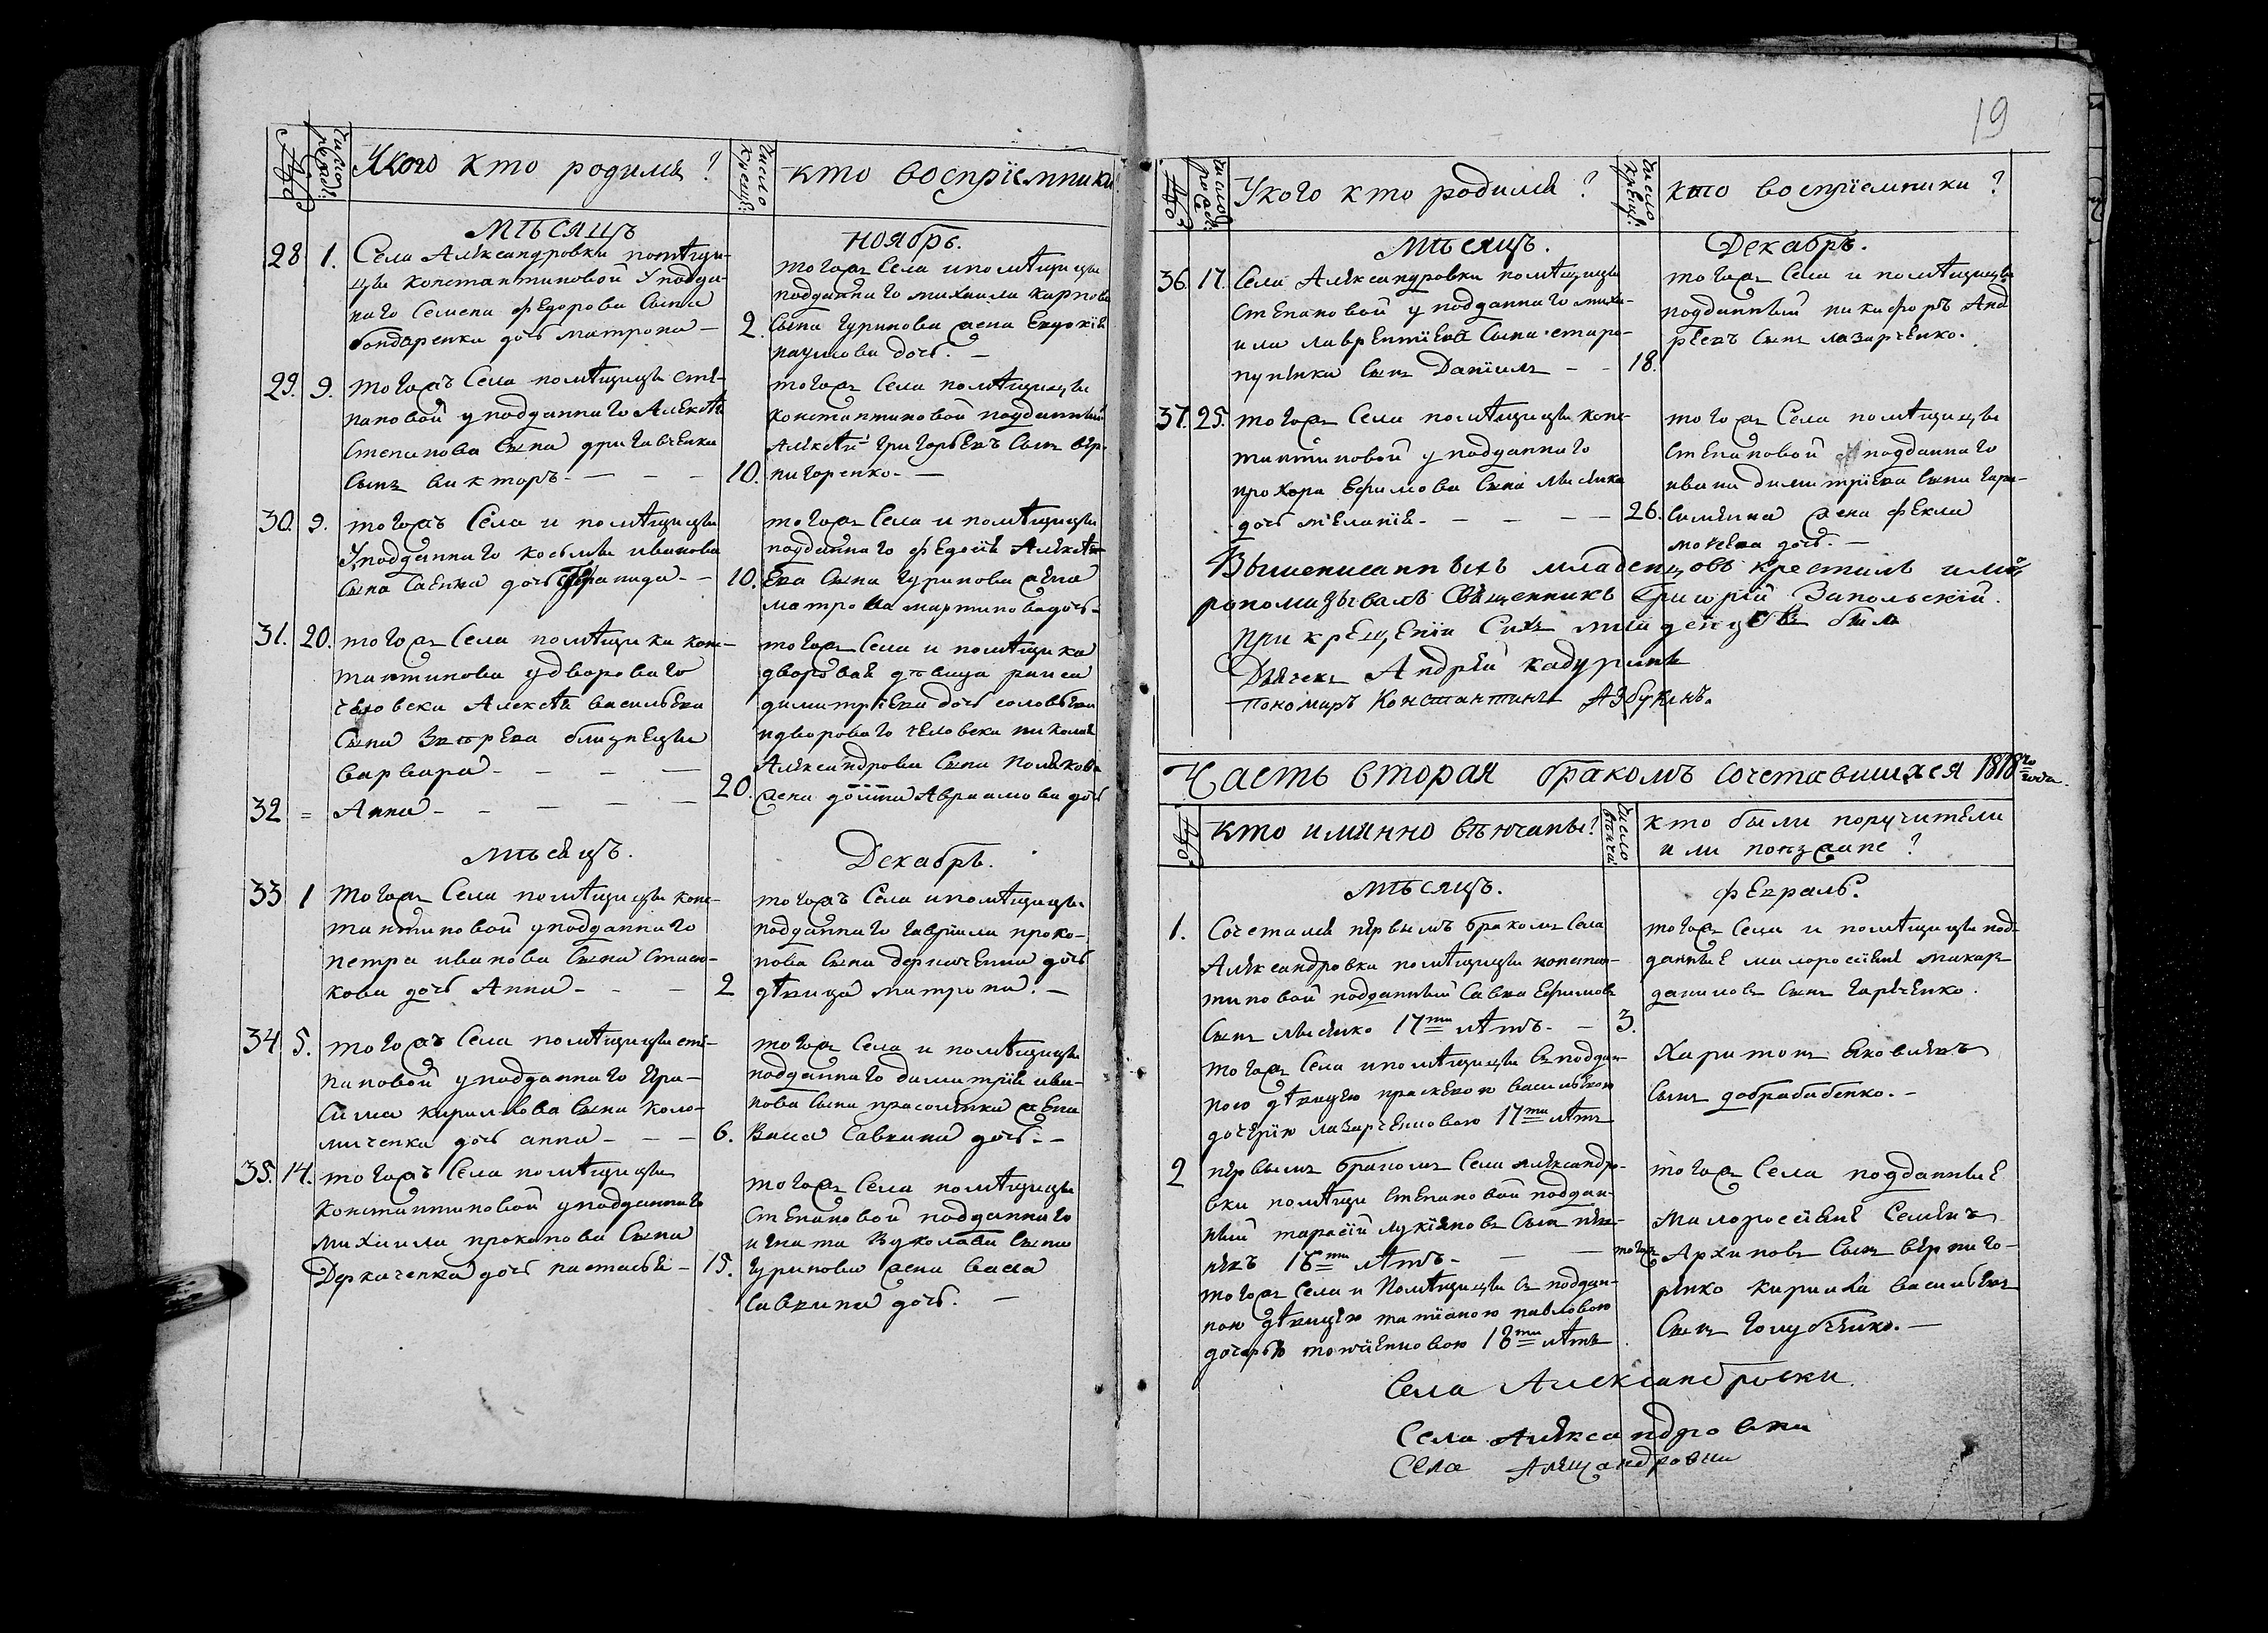 19
№
Число рожд:
У кого кто родился?
Число крещ:
кто восприемники
мѣсяцъ
ноябрь.
28 1. Села Александровки помѣщи-
цы константиновой у поддан-
наго Семена федорова Сына
бондаренка дочь матрона —
2.
тогожъ Села и помѣщицы
подданнаго михаила карпова
Сына гуринова жена Евдокія
наумова дочь. —
29. 9. тогожъ Села помѣщицы сте-
пановой у подданнаго Алексѣя
Степанова Сына
Сынъ викторъ. — — —
10.
тогожъ Села помѣщицы
константиновой подданный
Алексѣй григорьевъ Сынъ вер-
нигоренко. —
30. 9. тогожъ Села и помѣщицы
У подданнаго космы иванова
Сына Саенка дочь —
10.
тогожъ Села и помѣщицы
подданнаго федосія Алексѣ-
ева Сына гуринова жена
матрона мартинова дочь —
31. 20. тогожъ Села помѣщика конс-
тантинова у двороваго
человека Алексѣя васильева
Сына Звѣрева близнецы
варвара — — — —
32 = Анна — — — — —
20.
тогожъ Села и помѣщика
дворовая дѣвица раиса
димитріева дочь соловьева
и двороваго человека николая
Александрова Сына полякова
жена домна Авраамова дочь
мѣсяцъ.
Декабрь.
33 1 Тогожъ Села помѣщицы конс-
тантиновой у подданнаго
петра иванова Сына
кова дочь Анна — — —
2
тогожъ Села и помѣщицы
подданнаго гавріила проко-
пова Сына деркаченка дочь
дѣвица матрона. —
34 5. тогожъ Села помѣщицы сте-
пановой у подданнаго Гра-
сима кирилова Сына коло-
мыченка дочь анна — — —
6.
тогожъ Села и помѣщицы
подданнаго димитрія ива-
нова Сына прасоленка жена
Васса Савкина дочь. —
35. 14. тогожъ Села помѣщицы
константиновой у подданнаго
михаила прокопова Сына
Деркаченка дочь настасья —
15.
тогожъ Села помѣщицы
Степановой подданнаго
игната вуколова Сына
гуринова жена васса
Савкина дочь. —
№
число рожд:
У кого кто родился?
Число Крещ:
кто восприемники?
мѣсяцъ.
Декабрь.
36. 17. Села Александровки помѣщицы
Степановой у подданнаго миха-
ила лаврентіева Сына старо-
Сынъ Даніилъ — —
18.
тогожъ Села и помѣщицы
подданный никифоръ Анд-
реевъ Сынъ лазарченко.
37. 25. тогожъ Села помѣщицы конс-
тантиновой у подданнаго
прохора Ефимова Сына лысенка
дочь меланія — — — —
26.
тогожъ Села помѣщицы
Степановой подданнаго
ивана димитріева Сына гара-
жена фекла
моисеева дочь. —
Вышеписанныхъ младенцовъ крестилъ и мѵ-
ропомазывалъ Священникъ Григорій Запольскій.
при крещеніи Сихъ младенцевъ были
Дьячекъ Андрей кадуринъ
Пономарь Константинъ Азбукинъ.
Часть вторая бракомъ сочетавшихся 1818го года.
№
кто имянно вѣнчаны?
Число вѣнча:
кто были поручители
или поѣзжане?
мѣсяцъ.
февраль.
1. Сочетался первымъ бракомъ Села
Александровки помѣщицы констан-
тиновой подданный Савка Ефимовъ
Сынъ лысенко 17ти лѣтъ. —
3.
тогожъ Села и помѣщицы Съ поддан-
ною дѣвицею прасковею васильевою
дочерію лазарченковою 17ти лѣтъ
тогожъ Села и помѣщицы под-
данные малоросіяне макаръ
даниловъ Сынъ
Харитонъ Яковлевъ
Сынъ добрабабенко. —
2 первымъ бракомъ Села Александро-
вки помѣщи Степановой поддан-
ный тарасій лукіяновъ Сынъ
16ти лѣтъ. — —
тогожъ
тогожъ Села и Помѣщицы Съ поддан-
ною дѣвицею татіаною павловою
дочерью 18ти лѣтъ
тогожъ Села подданные
малоросіяне Семенъ
Архиповъ Сынъ верниго-
ренко кирила васильевъ
Сынъ голубенко. —
Села Александровки
Села Александровки
Села Александровки